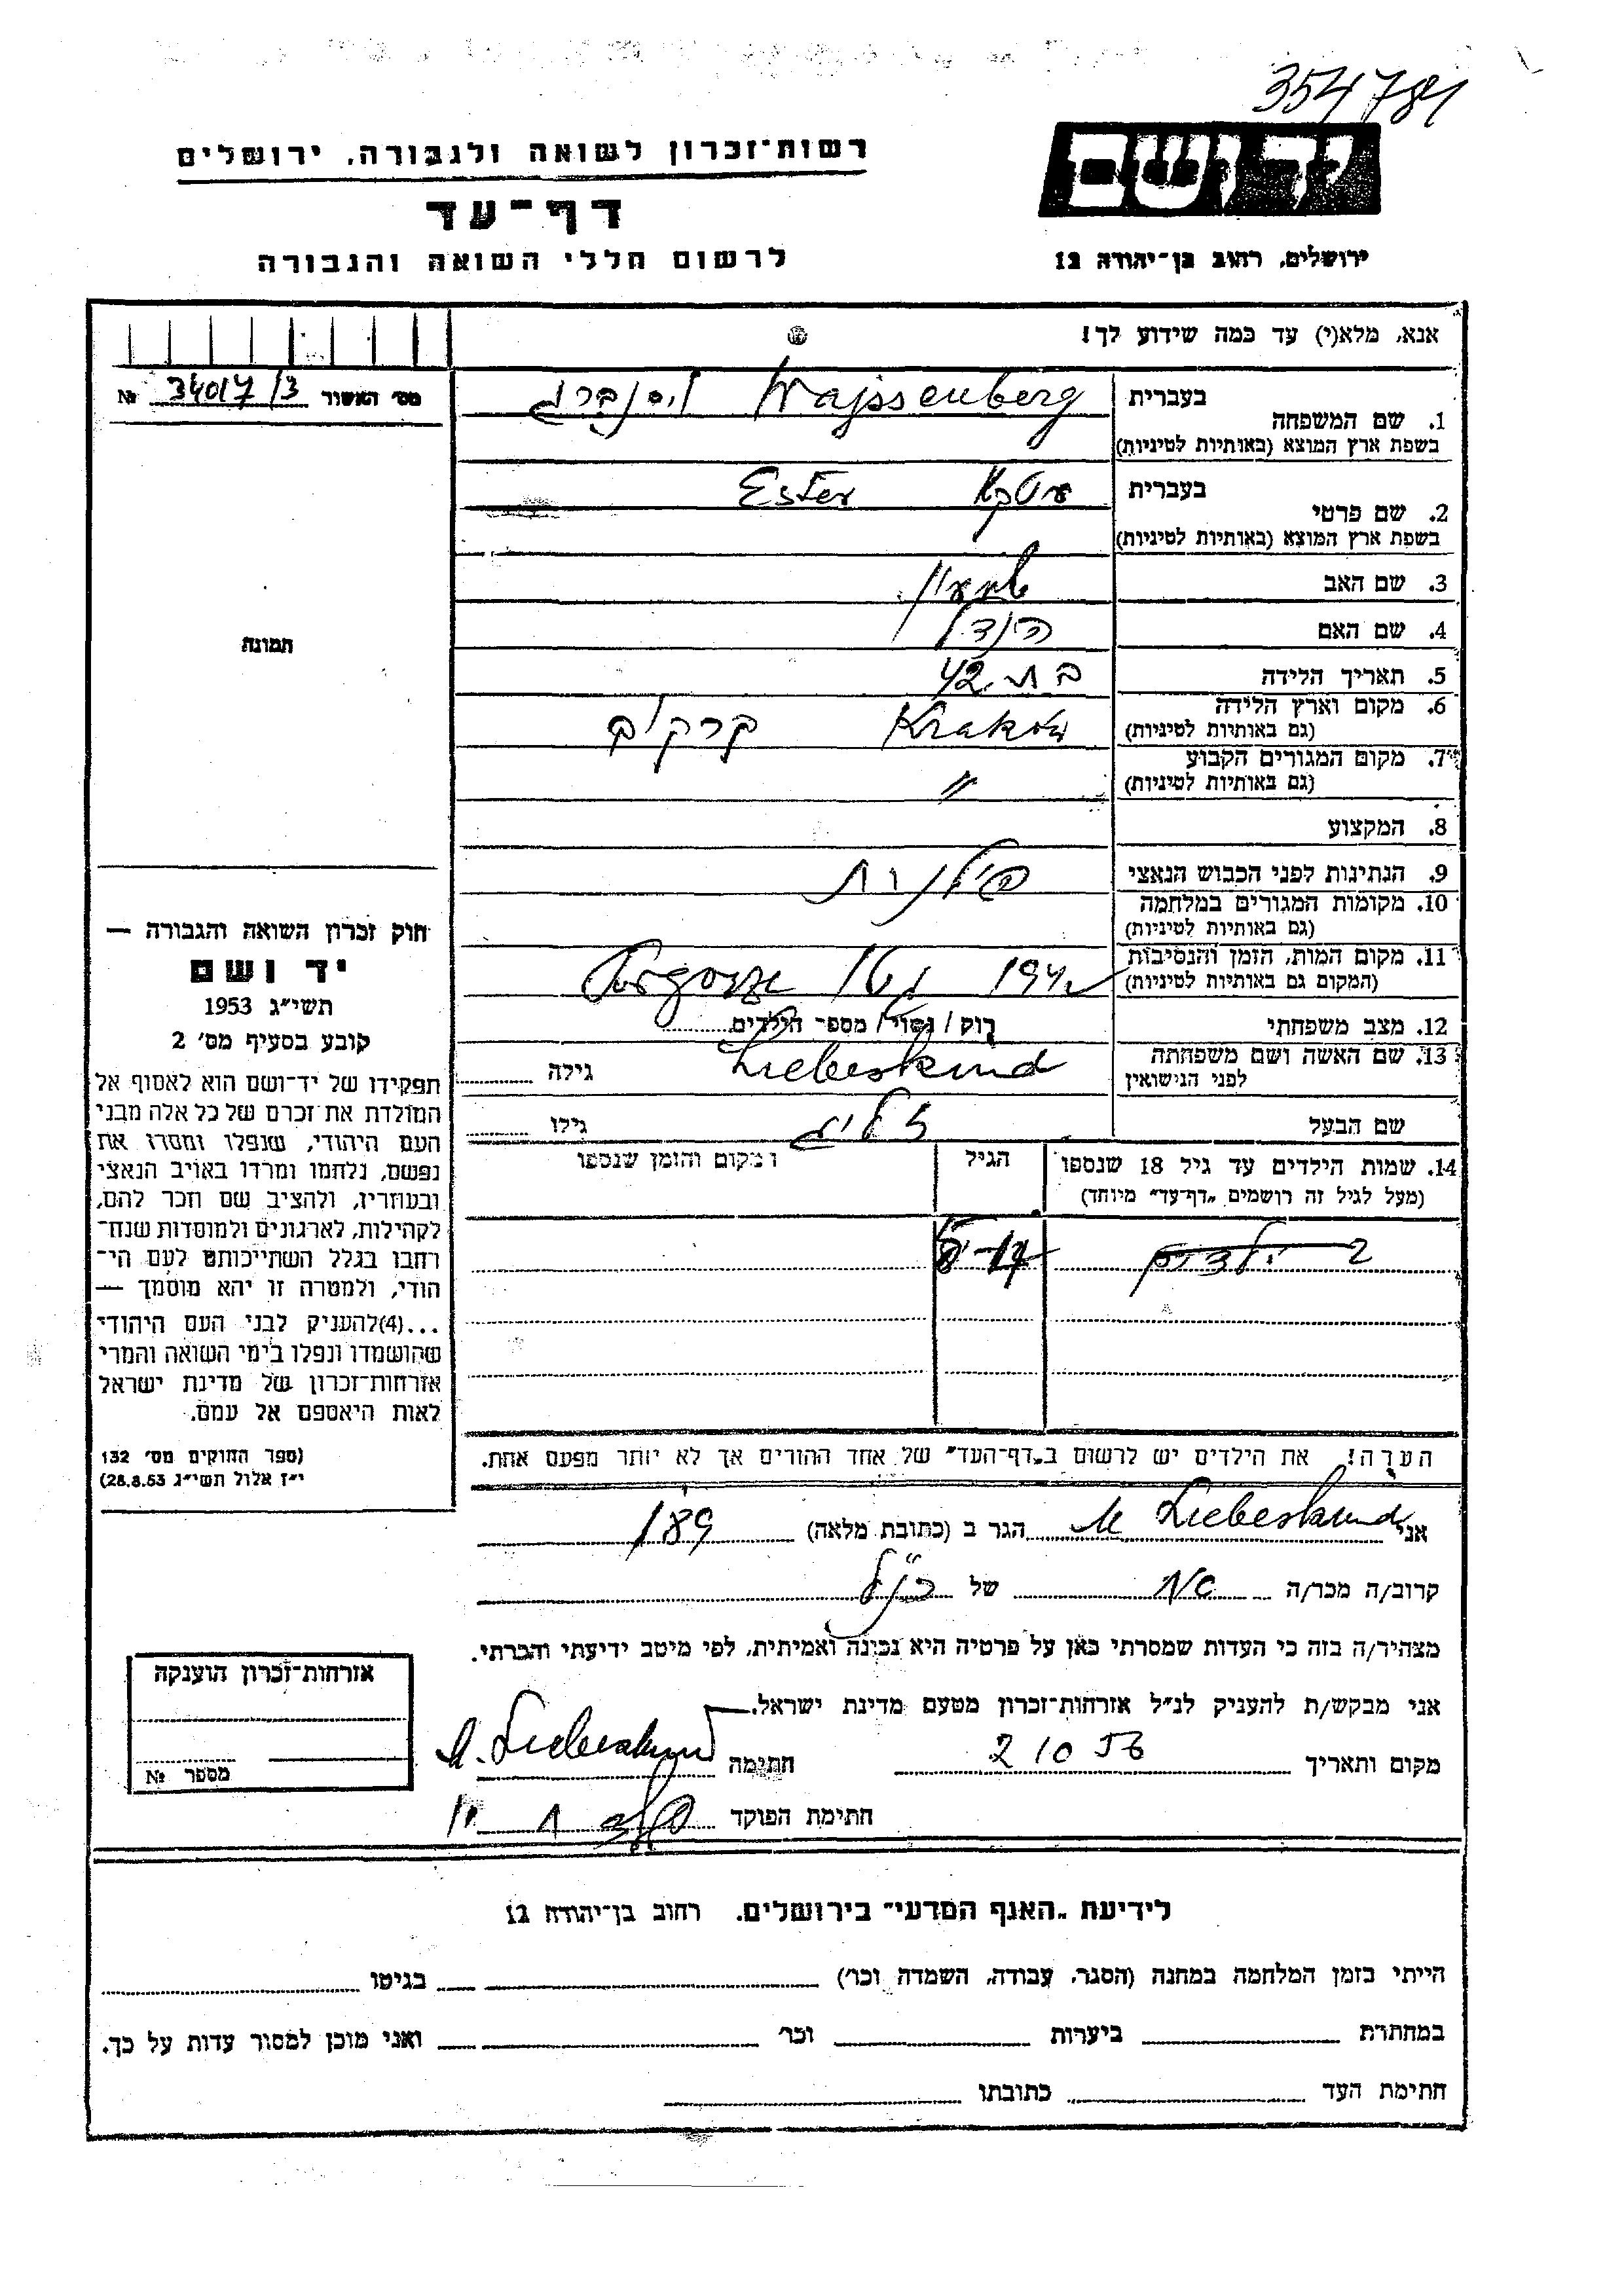 354784
יד ושם
רשות־זכרון לשואה ולגבורה, ירושלים
דף־עד
לרשום חללי השואה והגבורה
ירושלים, רחוב בן־יהודה 12
אנא, מלא(י) עד כמה שידוע לך!
מס׳ האשור 34017/3 №
תמונה
1. שם המשפחה בעברית Wajssenberg
בשפת ארץ המוצא (באותיות לטיניות)
2. שם פרטי בעברית Ester
בשפת ארץ המוצא (באותיות לטיניות)
3. שם האב שמעון
4. שם האם הינדל
5. תאריך הלידה בת 42
6. מקום וארץ הלידה Kraków קרקוב
(גם באותיות לטיניות)
7. מקום המגורים הקבוע "
(גם באותיות לטיניות)
8. המקצוע
9. הנתינות לפני הכבוש הנאצי פולנית
10. מקומות המגורים במלחמה
(גם באותיות לטיניות)
11. מקום המות, הזמן והנסיבות
(המקום גם באותיות לטיניות)
12. מצב משפחתי רוק / נשוי / מספר הילדים
13. שם האשה ושם משפחתה Liebeskind גילה
לפני הנישואין
שם הבעל זליג גילו
14. שמות הילדים עד גיל 18 שנספו הגיל ומקום והזמן שנספו
(מעל לגיל זה רושמים „דף־עד״ מיוחד)
2 ילדים
הערה! את הילדים יש לרשום ב„דף־העד״ של אחד ההורים אך לא יותר מפעם אחת.
חוק זכרון השואה והגבורה —
יד ושם
תשי״ג 1953
קובע בסעיף מס׳ 2
תפקידו של יד־ושם הוא לאסוף אל
המולדת את זכרם של כל אלה מבני
העם היהודי, שנפלו ומסרו את
נפשם, נלחמו ומרדו באויב הנאצי
ובעוזריו, ולהציב שם וזכר להם,
לקהילות, לארגונים ולמוסדות שנח־
רבו בגלל השתייכותם לעם הי־
הודי, ולמטרה זו יהא מוסמך —
...(4)להעניק לבני העם היהודי
שהושמדו ונפלו בימי השואה והמרי
אזרחות־זכרון של מדינת ישראל
לאות היאספם אל עמם.
(ספר החוקים מס׳ 132
י״ז אלול תשי״ג 28.8.53)
אני M Liebeskind הגר ב (כתובת מלאה)
קרוב/ה מכר/ה של כנ״ל
מצהיר/ה בזה כי העדות שמסרתי כאן על פרטיה היא נכונה ואמיתית, לפי מיטב ידיעתי והכרתי.
אני מבקש/ת להעניק לנ״ל אזרחות־זכרון מטעם מדינת ישראל.
מקום ותאריך 2 10 56 חתימה M. Liebeskind
חתימת הפוקד
אזרחות־זכרון הוענקה
מספר №
לידיעת „האגף המדעי״ בירושלים. רחוב בן־יהודה 12
הייתי בזמן המלחמה במחנה (הסגר, עבודה, השמדה וכו׳) בגיטו
במחתרת ביערות וכו׳ ואני מוכן למסור עדות על כך.
חתימת העד כתובתו